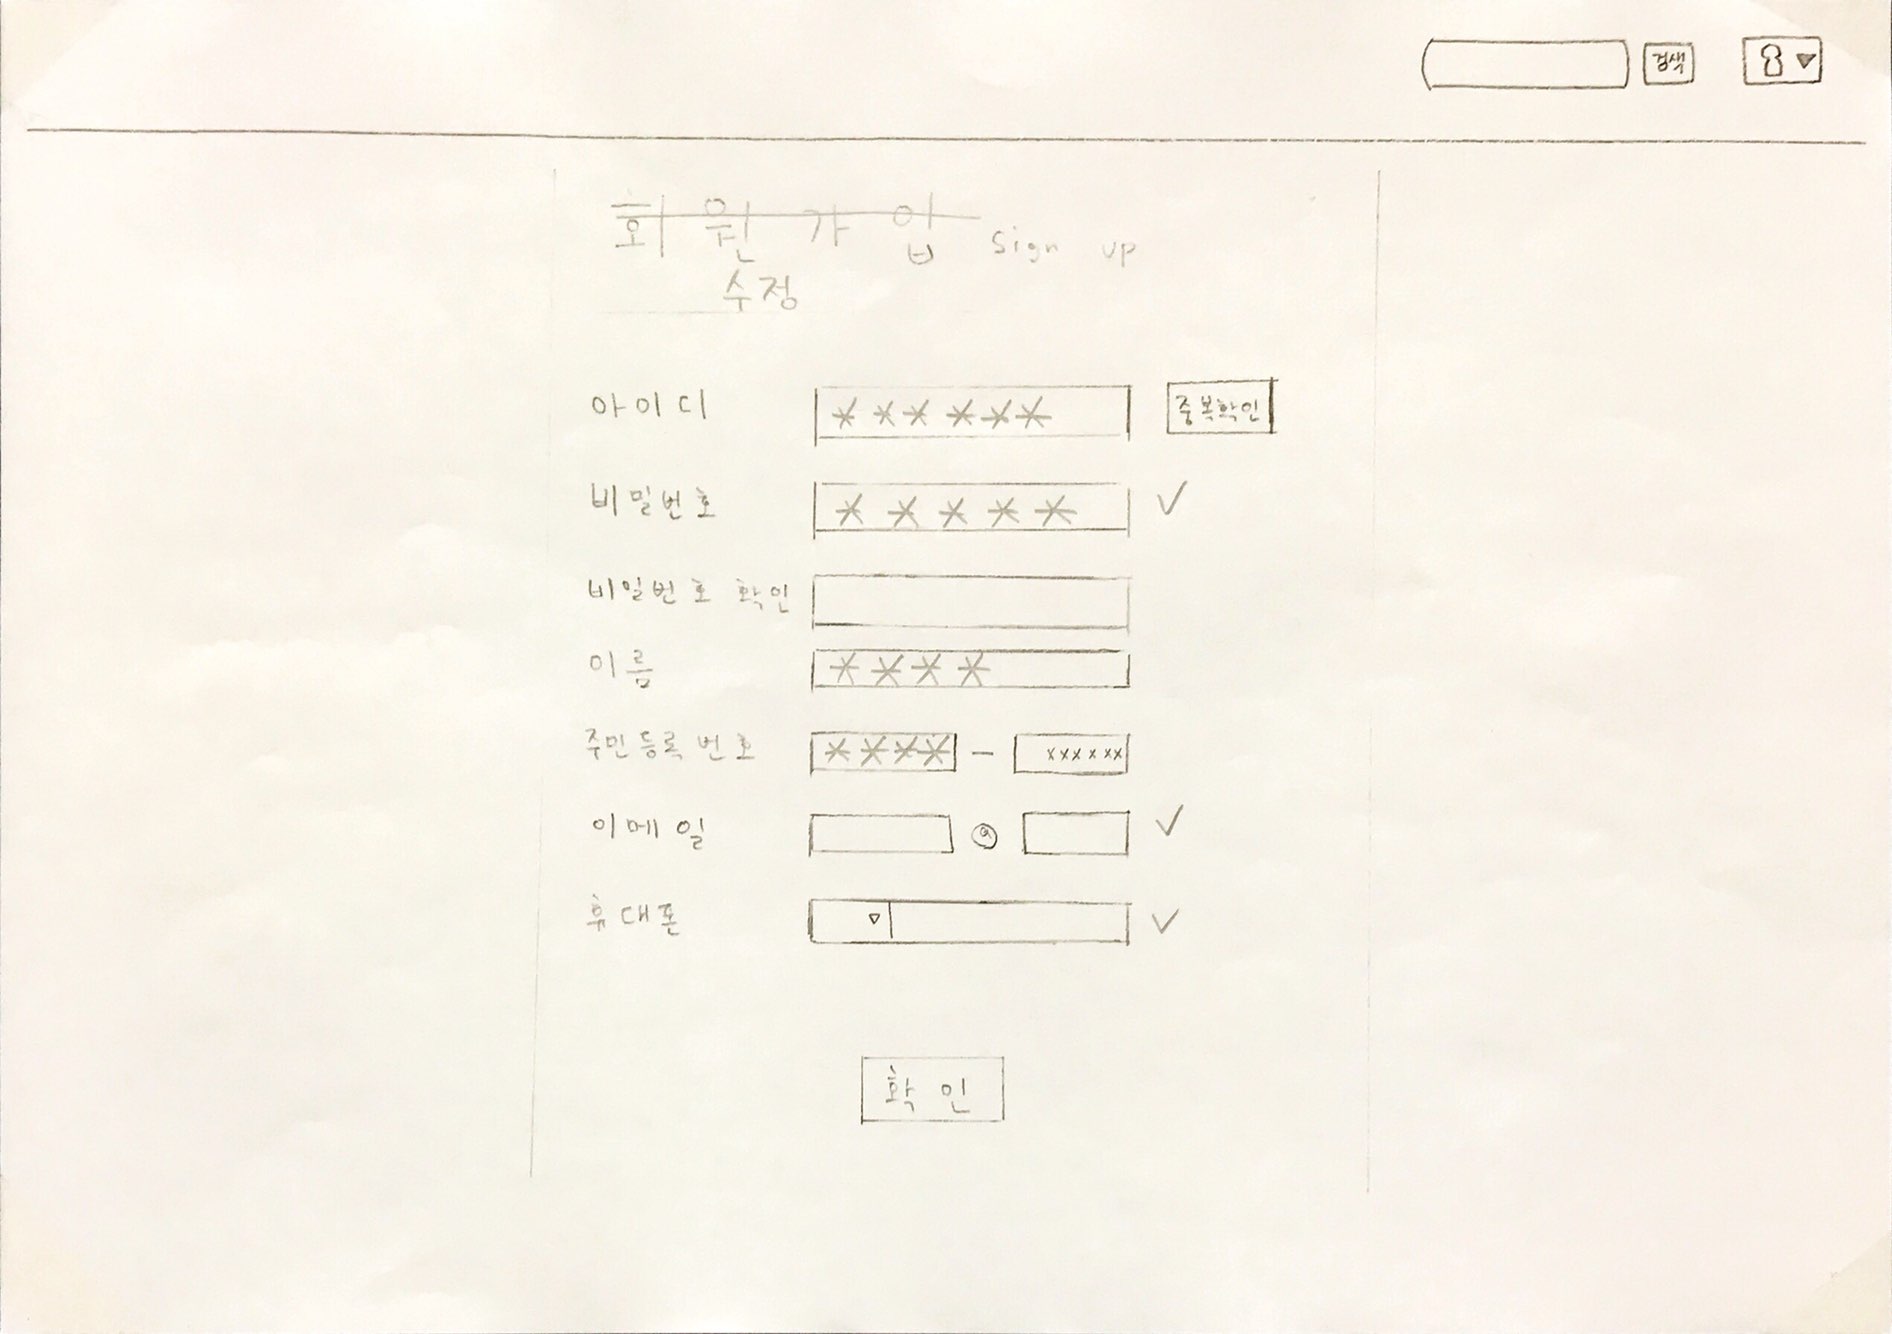 검색
회원가입 sign up
수정
아이디 ****** 중복확인
비밀번호 *****
비밀번호 확인
이름 ****
주민등록번호 **** - xxxxxx
이메일 @
휴대폰
확인